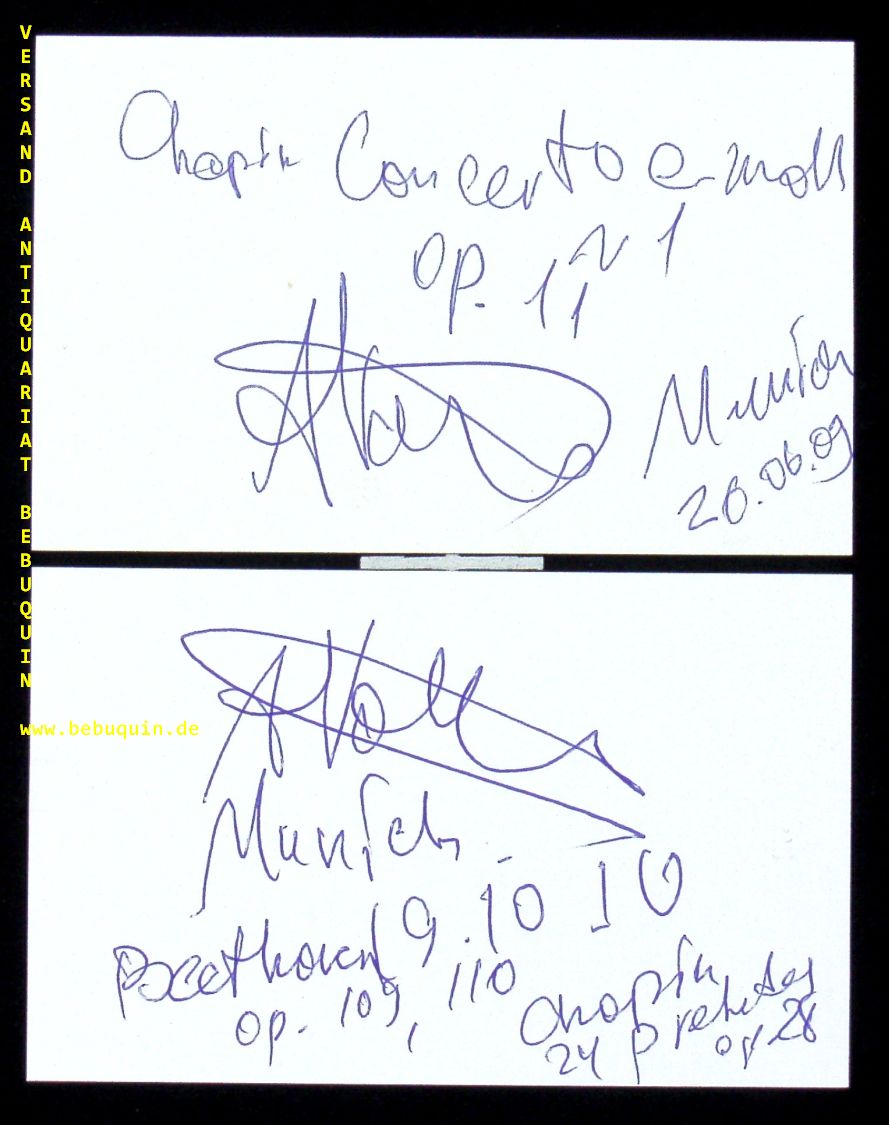 VERSAND ANTIQUARIAT BEBUQUIN
www.bebuquin.de
Chopin Concerto e-moll
N 1
op. 11
Munich
20.06.09
Munich
9.10 10
Beethoven
op. 109, 110
Chopin
24 Preludes
op 28